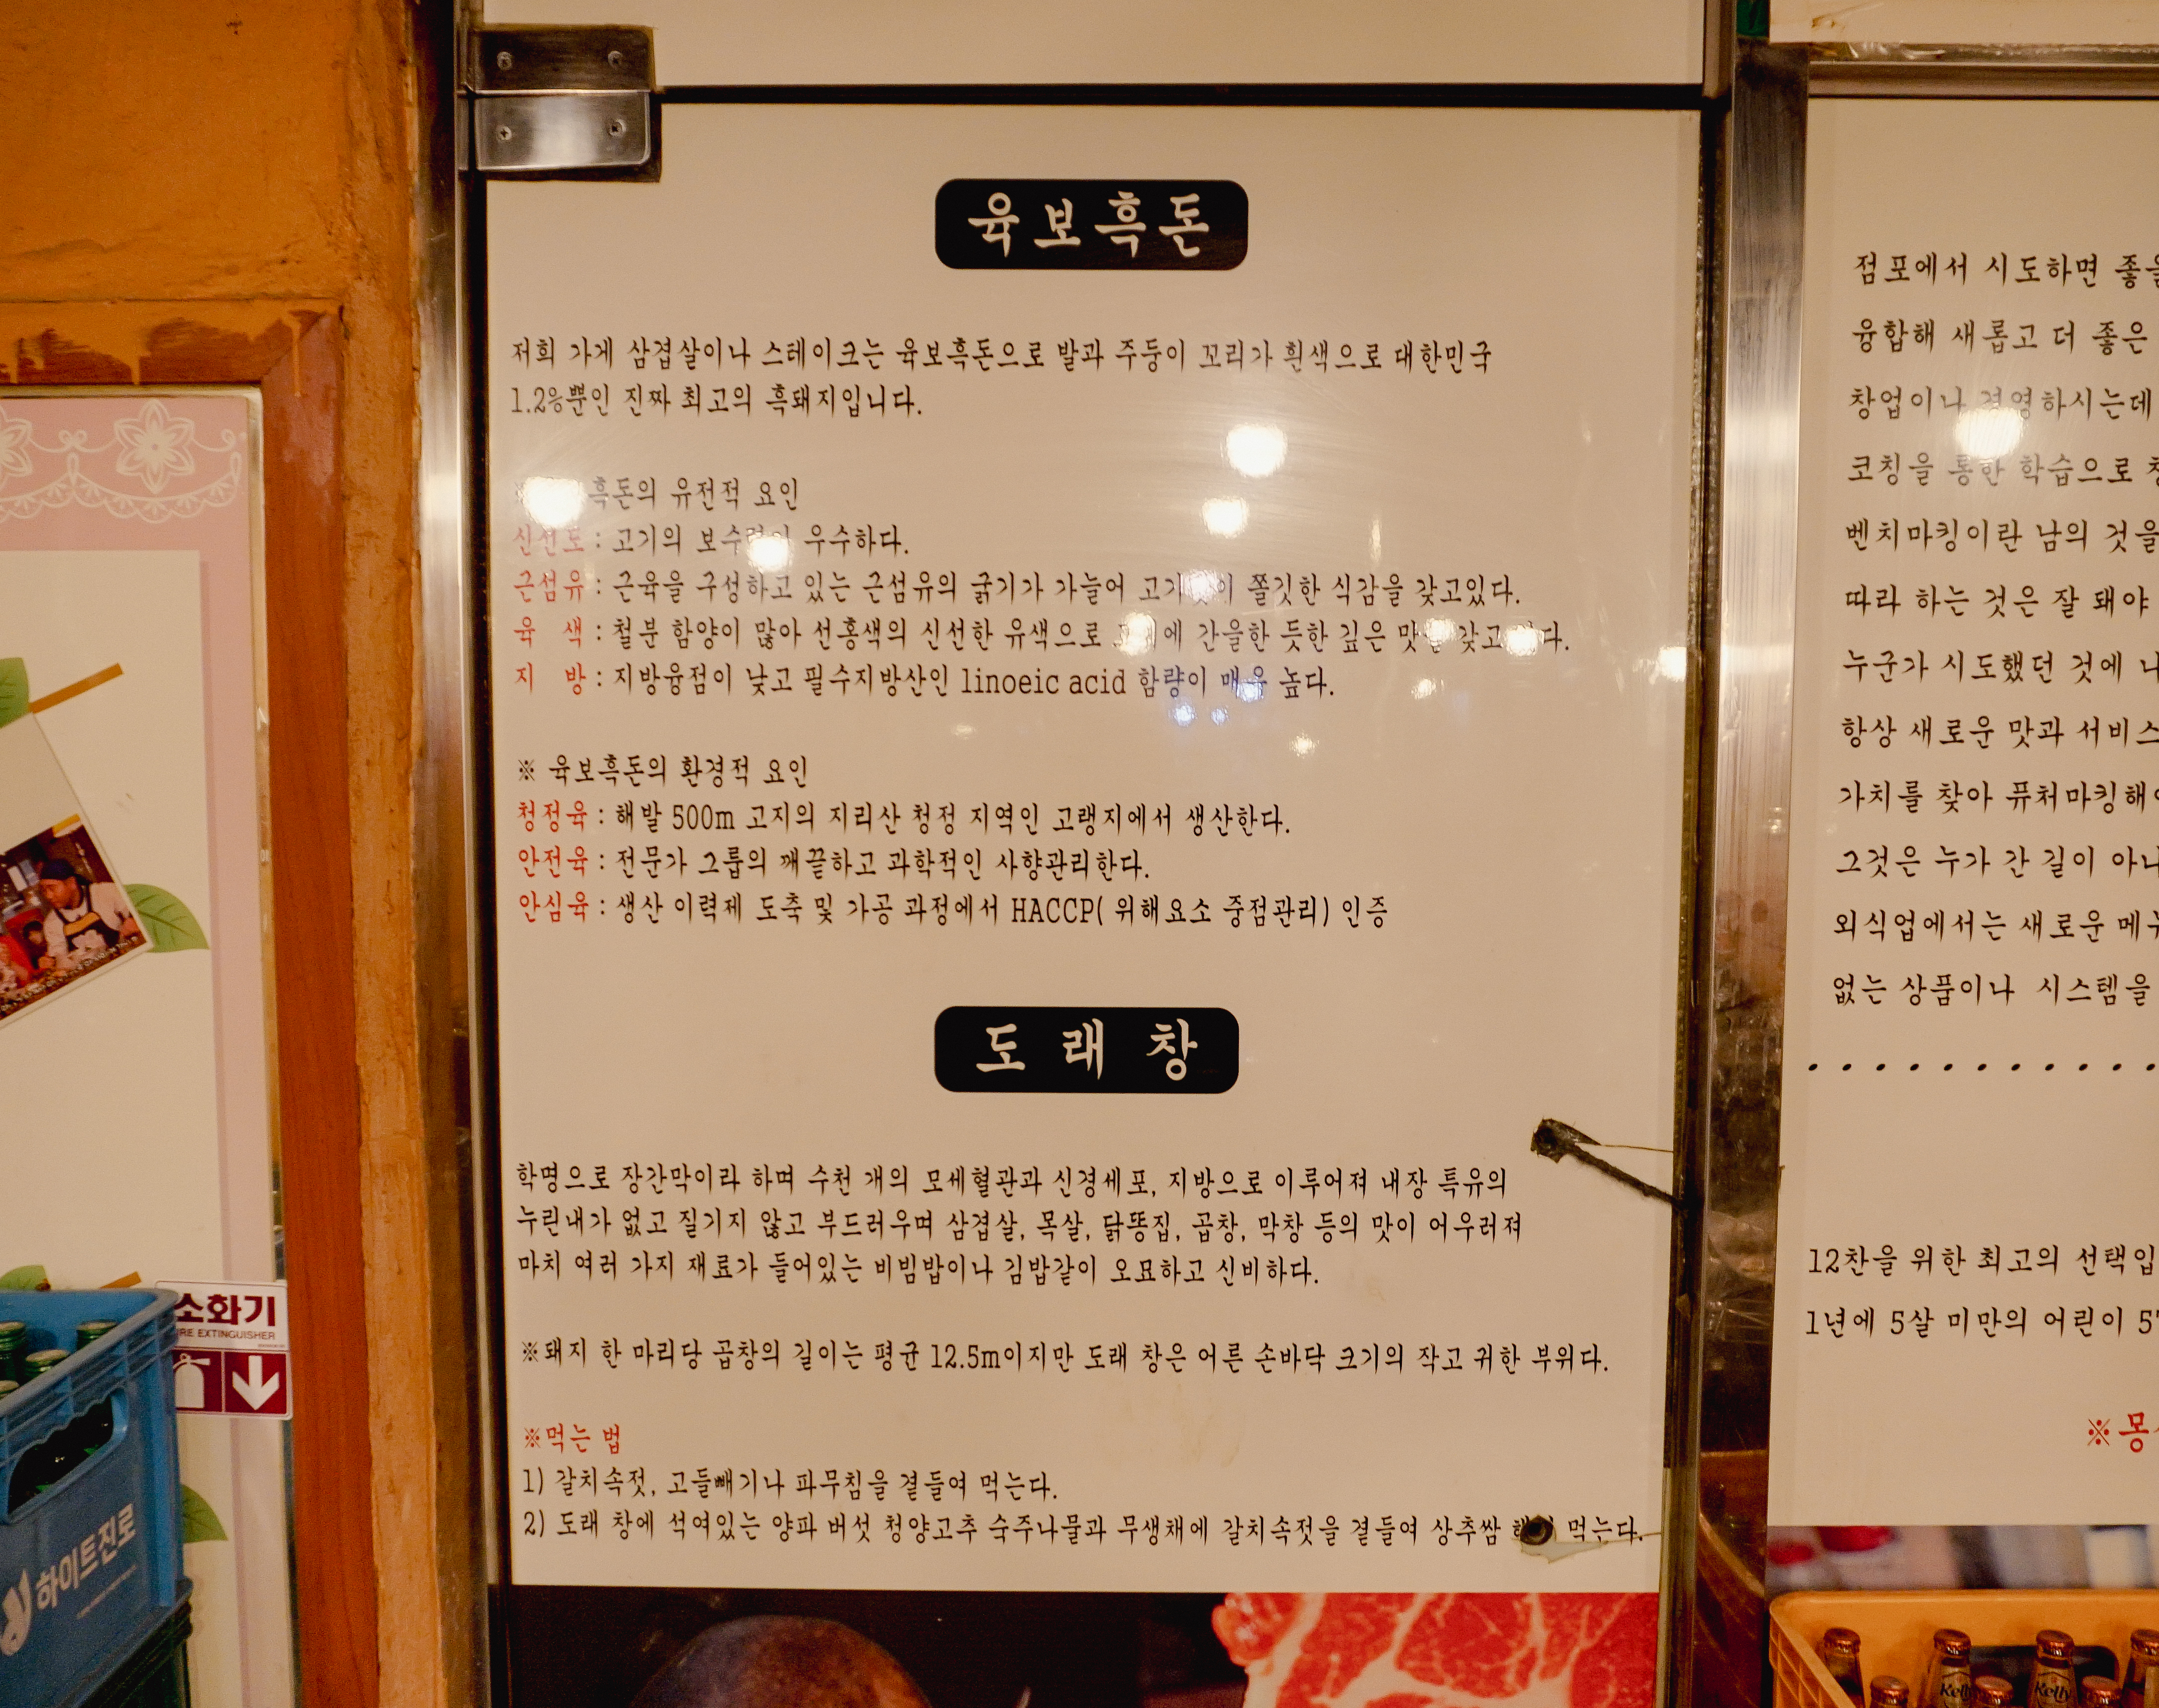 육보흑돈
저희 가게 삼겹살이나 스테이크는 육보흑돈으로 발과 주둥이 꼬리가 흰색으로 대한민국
1.2%뿐인 진짜 최고의 흑돼지입니다.
흑돈의 유전적 요인
신선도 : 고기의 보수력이 우수하다.
근섬유 : 근육을 구성하고 있는 근섬유의 굵기가 가늘어 쫄깃한 식감을 갖고있다.
육 색 : 철분 함양이 많아 선홍색의 신선한 유색으로 간을한 듯한 깊은 맛을 갖고
지 방 : 지방융점이 낮고 필수지방산인 linoeic acid 함량이 매우 높다.
※ 육보흑돈의 환경적 요인
청정육 : 해발 500m 고지의 지리산 청정 지역인 고랭지에서 생산한다.
안전육 : 전문가 그룹의 깨끝하고 과학적인 사향관리한다.
안심육 : 생산 이력제 도축 및 가공 과정에서 HACCP( 위해요소 중점관리) 인증
도 래 창
학명으로 장간막이라 하며 수천 개의 모세혈관과 신경세포, 지방으로 이루어져 내장 특유의
누린내가 없고 질기지 않고 부드러우며 삼겹살, 목살, 닭똥집, 곱창, 막창 등의 맛이 어우러져
마치 여러 가지 재료가 들어있는 비빔밥이나 김밥같이 오묘하고 신비하다.
※돼지 한 마리당 곱창의 길이는 평균 12.5m이지만 도래 창은 어른 손바닥 크기의 작고 귀한 부위다.
※먹는 법
1) 갈치속젓, 고들빼기나 파무침을 곁들여 먹는다.
2) 도래 창에 석여있는 양파 버섯 청양고추 숙주나물과 무생채에 갈치속젓을 곁들여 상추쌈 먹는다.
점포에서 시도하면 좋을
융합해 새롭고 더 좋은
창업이나 경영하시는데
코칭을 통한 학습으로
벤치마킹이란 남의 것을
따라 하는 것은 잘 돼야
누군가 시도했던 것에
항상 새로운 맛과 서비스
가치를 찾아 퓨처마킹해
그것은 누가 간 길이
외식업에서는 새로운
없는 상품이나 시스템을
12찬을 위한 최고의 선택입
1년에 5살 미만의 어린이
※몽
소화기
FIRE EXTINGUISHER
하이트진로
Kelly
Kelly